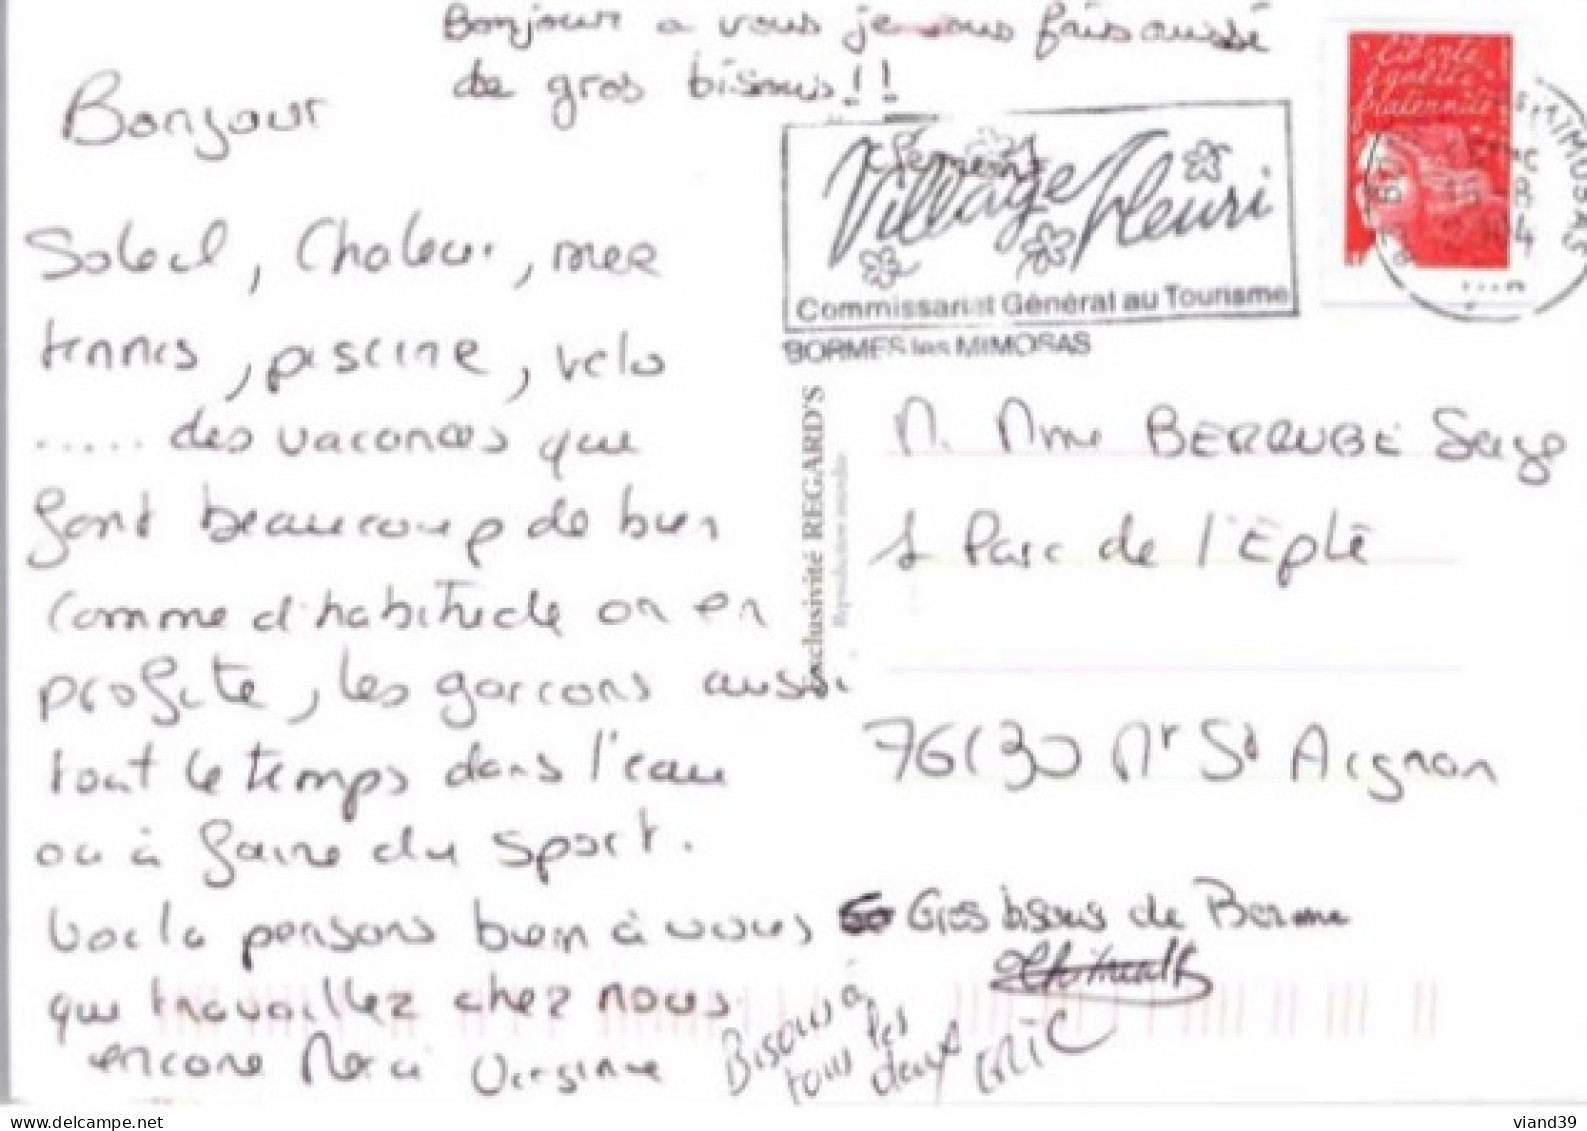 Bonjour a vous je vous fais aussi
de gros bisous!!
clement
Bonjour
Soleil, Chaleur, mer
tennis, piscine, velo
..... des vacances qui
font beaucoup de bien
comme d'habitude on en
profite, les garcons aussi
tout le temps dans l'eau
ou à faire du sport.
Voila pensons bien à vous
qui travaillez chez nous
encore Merci Virginie
Bisous à
tous les
deux
ERIC
Gros bisous de Borme
Liberté
égalité
fraternité
Village Fleuri
Commissariat Général au Tourisme
BORMES les MIMOSAS
exclusivité REGARD'S
Reproduction interdite
M. Mme BERRUBE Serge
1 Parc de l'Epte
76130 Mt St Aignan
viand39